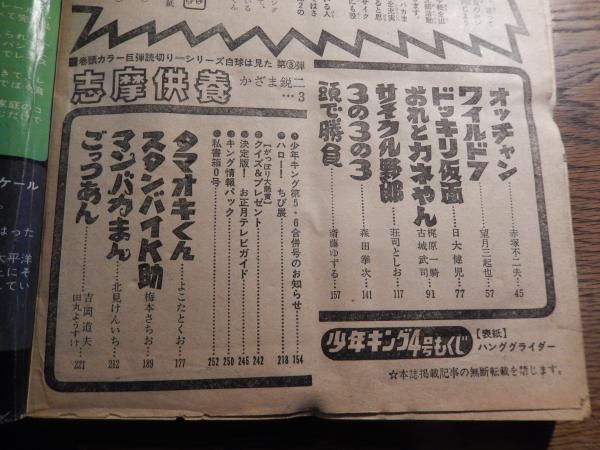 巻頭カラー巨弾読切りーシリーズ白球は見た 第③弾
志摩供養 かざま鋭二…3
オッチャン……赤塚不二夫…45
ワイルド7……望月三起也…57
ドッキリ仮面……日大健児…77
おれとカネやん……梶原一騎 古城武司…91
サイクル野郎……荘司としお…117
3の3の3……森田拳次…141
頭で勝負……斎藤ゆずる…157
少年キング第5・6合併号のお知らせ……154
ハロー!ちび展……218
【がっぽり大懸賞】
クイズ&プレゼント……242
決定版!お正月テレビガイド……245
キング情報パック……250
私書箱0号……252
タマオキくん……よこたとくお…177
スタンバイK助……梅本さちお…189
マンバカまん……北見けんいち…212
ごっつあん……吉岡道夫 田丸ようすけ…221
少年キング4号もくじ
【表紙】
ハンググライダー
☆本誌掲載記事の無断転載を禁じます。
ケール
はった
太平洋
上にそ
してい